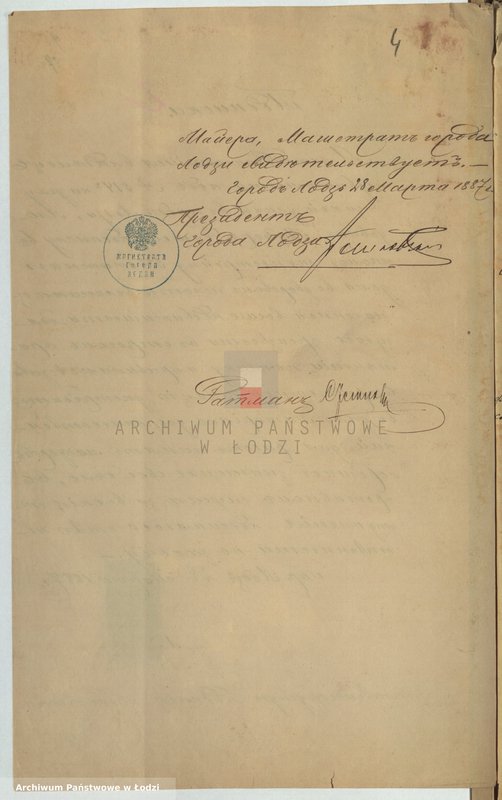 4
Майера, Магистратъ города
Лодзи свидѣтельствуетъ. —
Городъ Лодзь 28 Марта 1887 г.
Президентъ
Города Лодзи
МАГИСТРАТА
ГОРОДА
ЛОДЗИ
Ратманъ
ARCHIWUM PAŃSTWOWE
W ŁODZI
Archiwum Państwowe w Łodzi